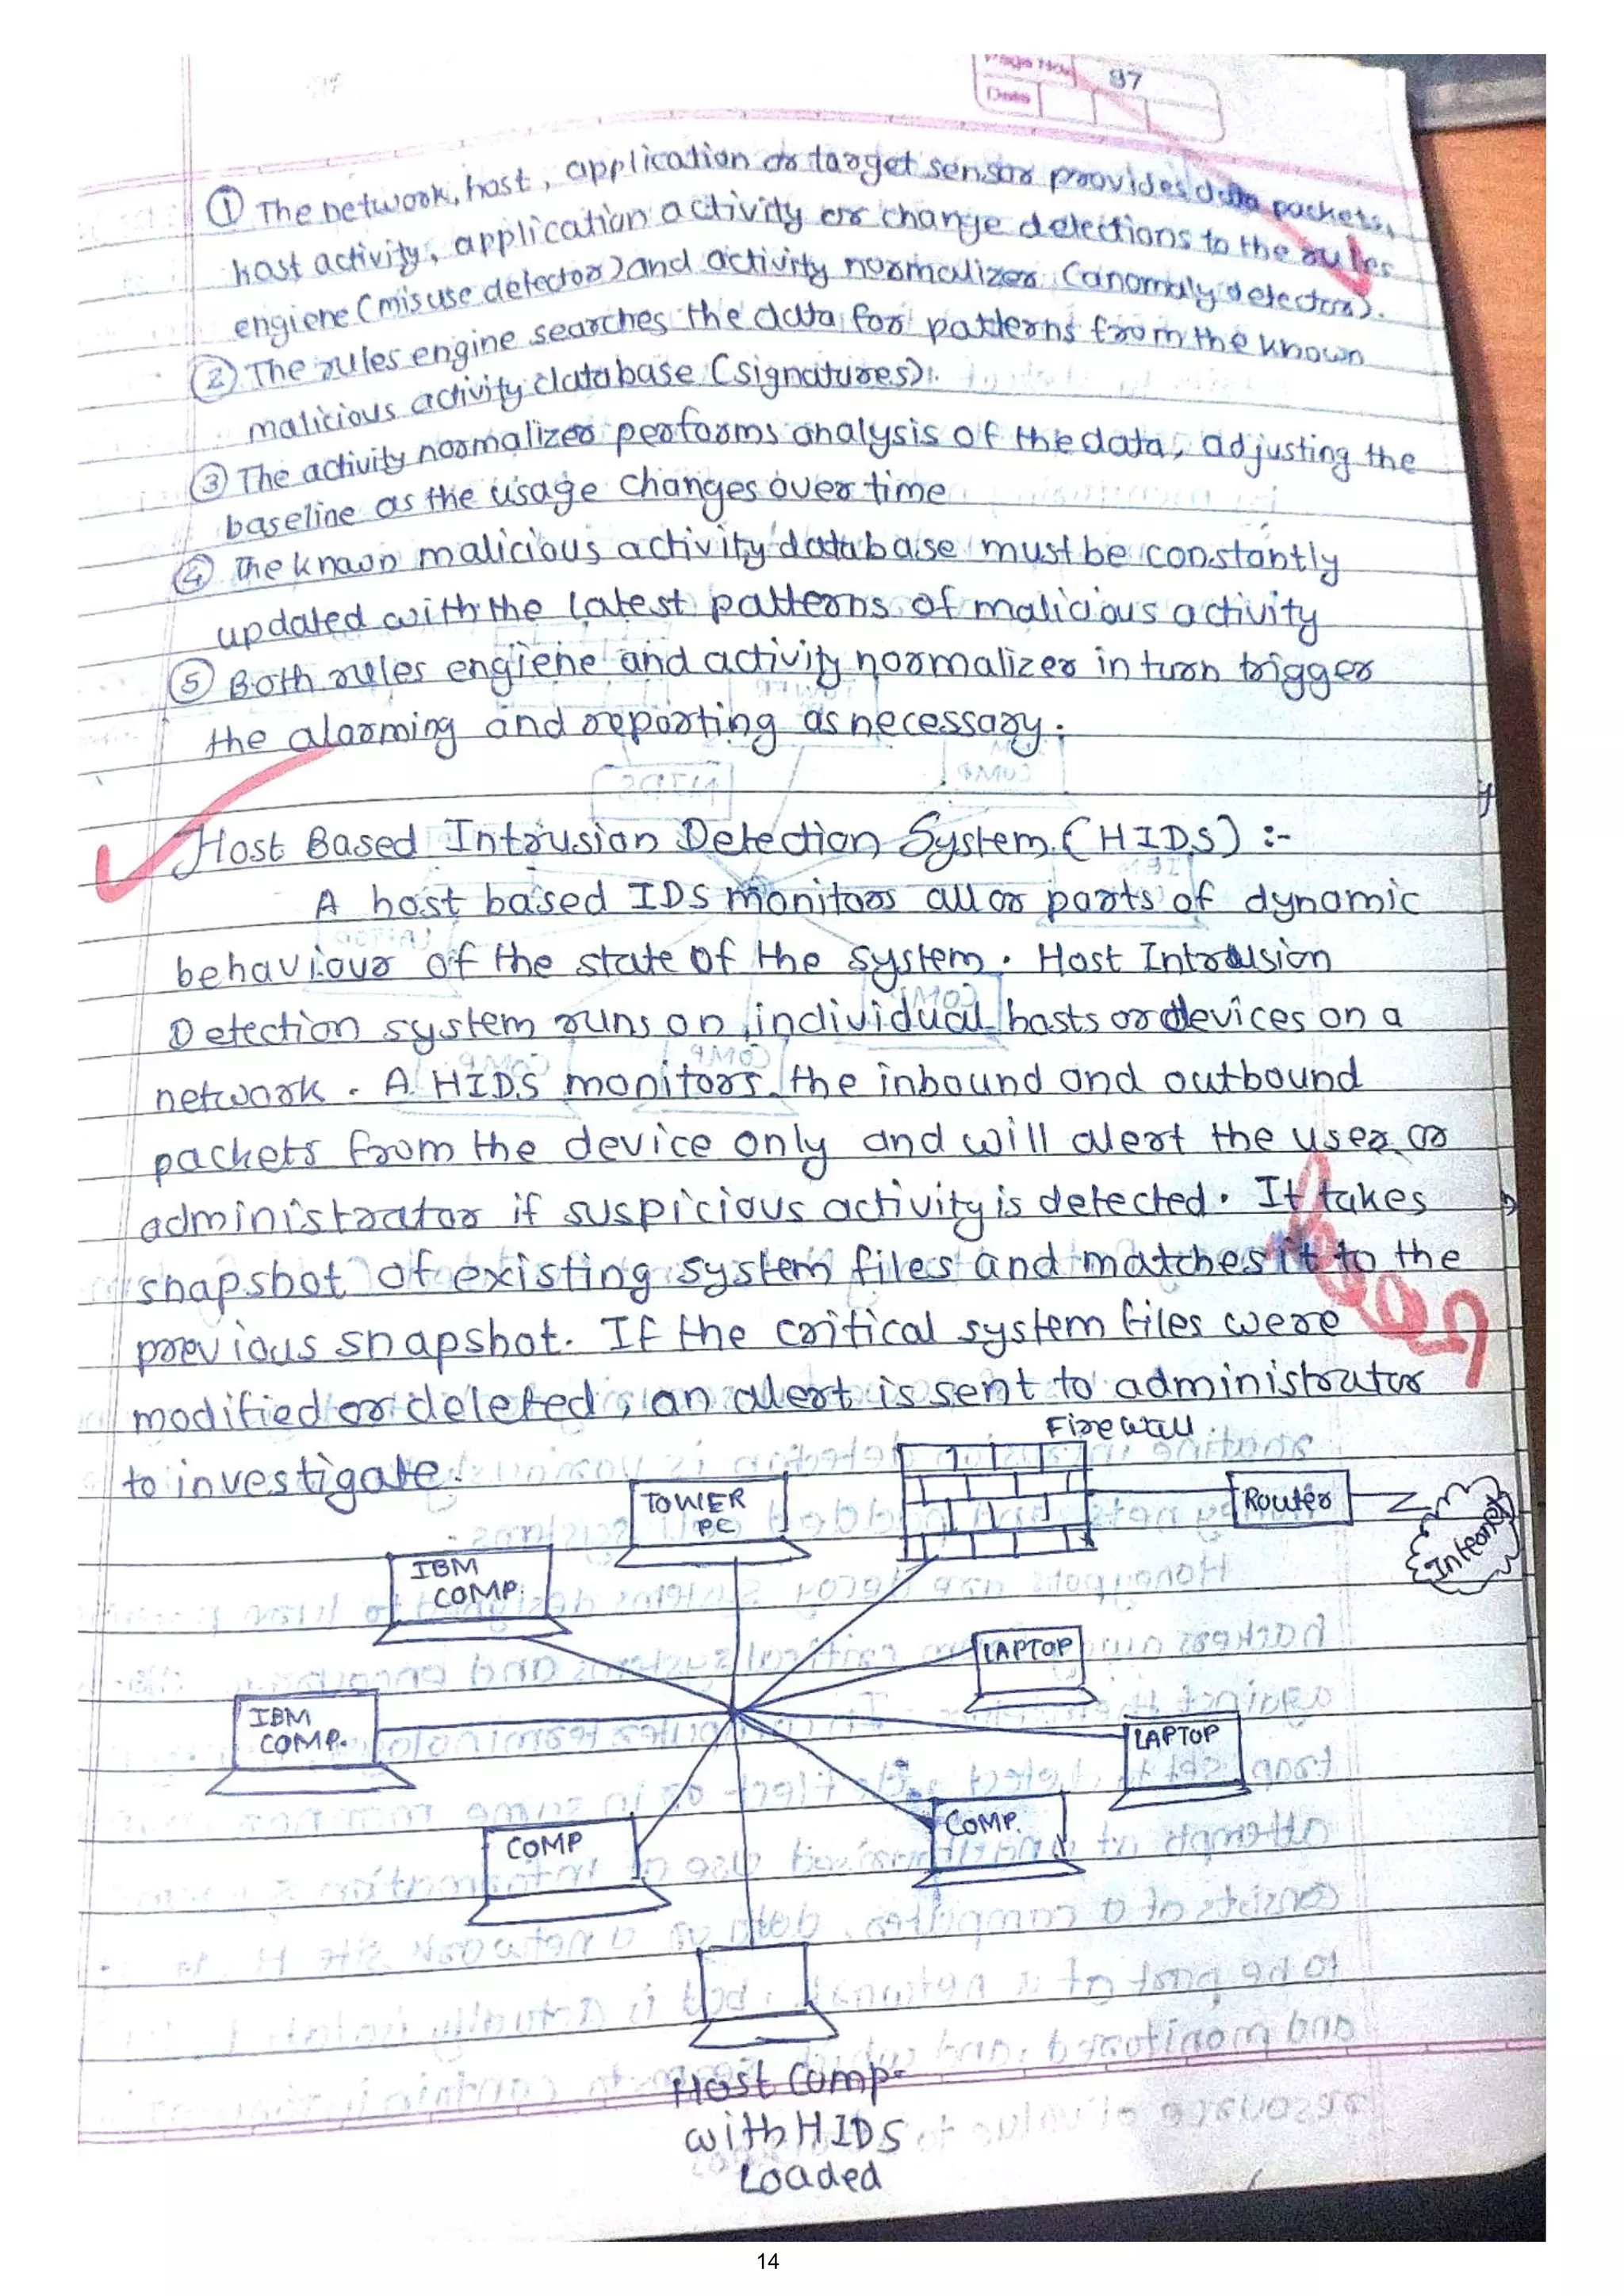 Page No. 97
Date
① The network, host, application or target sensor provides data packets,
host activity, application activity or change detections to the rules
engiene (misuse detector) and activity normalizer (anomaly detector).
② The rules engine searches the data for patterns from the known
malicious activity database (signatures).
③ The activity normalizer performs analysis of the data, adjusting the
baseline as the usage changes over time
④ The known malicious activity database must be constantly
updated with the latest patterns of malicious activity
⑤ Both rules engiene and activity normalizer in turn trigger
the alarming and reporting as necessary.
Host Based Intrusion Detection System (HIDS) :-
A host based IDS monitors all or parts of dynamic
behaviour of the state of the system. Host Intrusion
Detection system runs on individual hosts or devices on a
network. A HIDS monitors the inbound and outbound
packets from the device only and will alert the user or
administrator if suspicious activity is detected. It takes
snapshot of existing system files and matches it to the
previous snapshot. If the critical system files were
modified or deleted, an alert is sent to administrator
to investigate.
Firewall
TOWER
PC
Router
Internet
IBM
COMP.
LAPTOP
IBM
COMP.
LAPTOP
COMP
COMP.
Host Comp.
with HIDS
Loaded
14